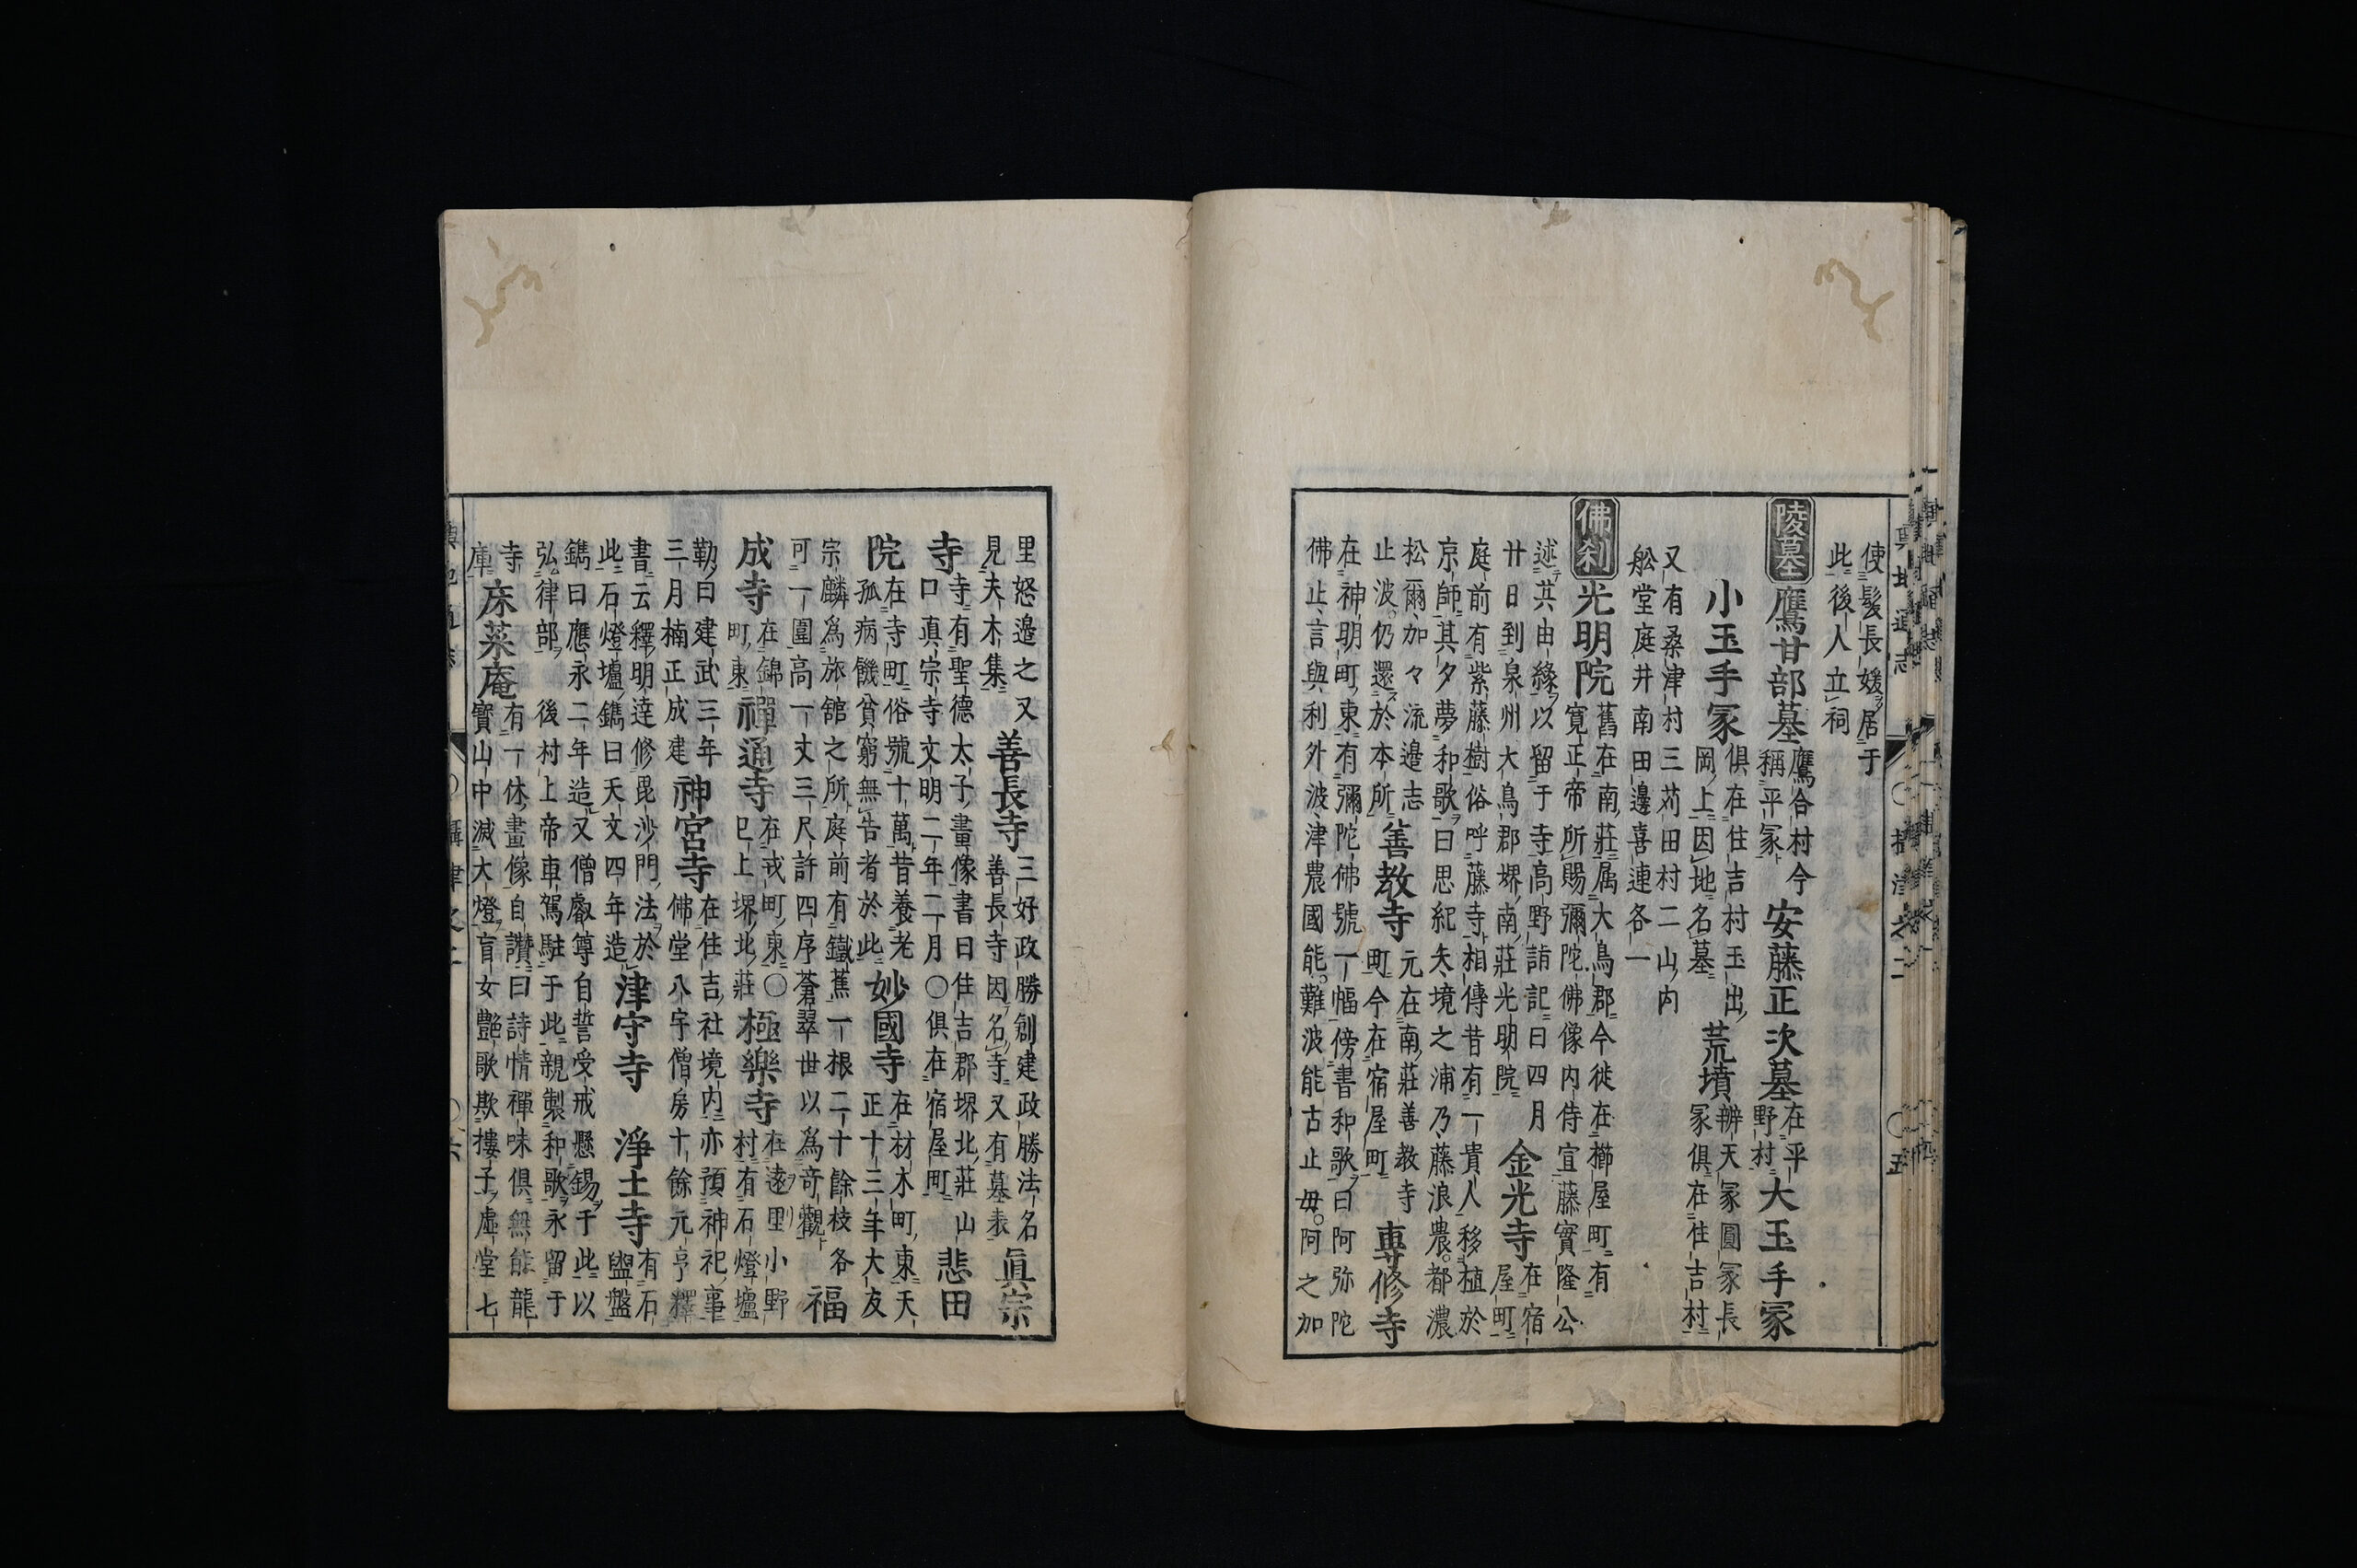 使髮長媛居于
此後人立祠
陵墓 鷹甘部墓
鷹合村今
稱平冢
安藤正次墓
在平
野村
大玉手冢
小玉手冢
俱在住吉村玉出
岡上因地名墓
荒墳
辨天冢圓冢長
冢俱在住吉村
又有桑津村三苅田村二山内
舩堂庭井南田邊喜連各一
佛刹 光明院
舊在南莊属大鳥郡今徙在櫛屋町有
寛正帝所賜彌陀佛像内侍宣藤實隆公
述其由緣以留于寺高野詣記曰四月
廿日到泉州大鳥郡堺南莊光明院
金光寺
在宿
屋町
庭前有紫藤樹俗呼藤寺相傳昔有一貴人移植於
京師其夕夢和歌曰思紀矢境之浦乃藤浪農都濃
松爾加々流邉志
止波仍還於本所
善教寺
元在南莊善教寺
町今在宿屋町
專修寺
在神明町東有彌陀佛號一幅傍書和歌曰阿弥陀
佛止言與利外波津農國能難波能古止毋阿之加
輿地通志
攝津之二
五
里怒邉之又
見夫木集
善長寺
三好政勝創建政勝法名
善長寺因名寺又有墓表
眞宗
寺
寺有聖德太子畫像書曰住吉郡堺北莊山
口真宗寺文明二年二月〇俱在宿屋町
悲田
院
在寺町俗號十萬昔養老
孤病饑貧窮無告者於此
妙國寺
在材木町東天
正十三年大友
宗麟為旅舘之所庭前有鐵蕉一根二十餘枝各
可一圍高一丈三尺許四序蒼翠世以為奇觀
福
成寺
在錦
町東
禪通寺
在戎町東〇
已上堺北莊
極樂寺
在遠里小野
村有石燈壚
勒曰建武三年
三月楠正成建
神宮寺
在住吉社境内亦預神祀事
佛堂八宇僧房十餘元亨釋
書云釋明達修毘沙門法於
此石燈壚鐫曰天文四年造
津守寺
淨土寺
有石
盥盤
鐫曰應永二年造又僧叡尊自誓受戒懸錫于此以
弘律部 後村上帝車駕駐于此親製和歌永留于
寺
庫
床菜庵
有一休畫像自讃曰詩情禪味俱無能龍
寳山中滅大燈盲女艶歌欺樓子虛堂七
六